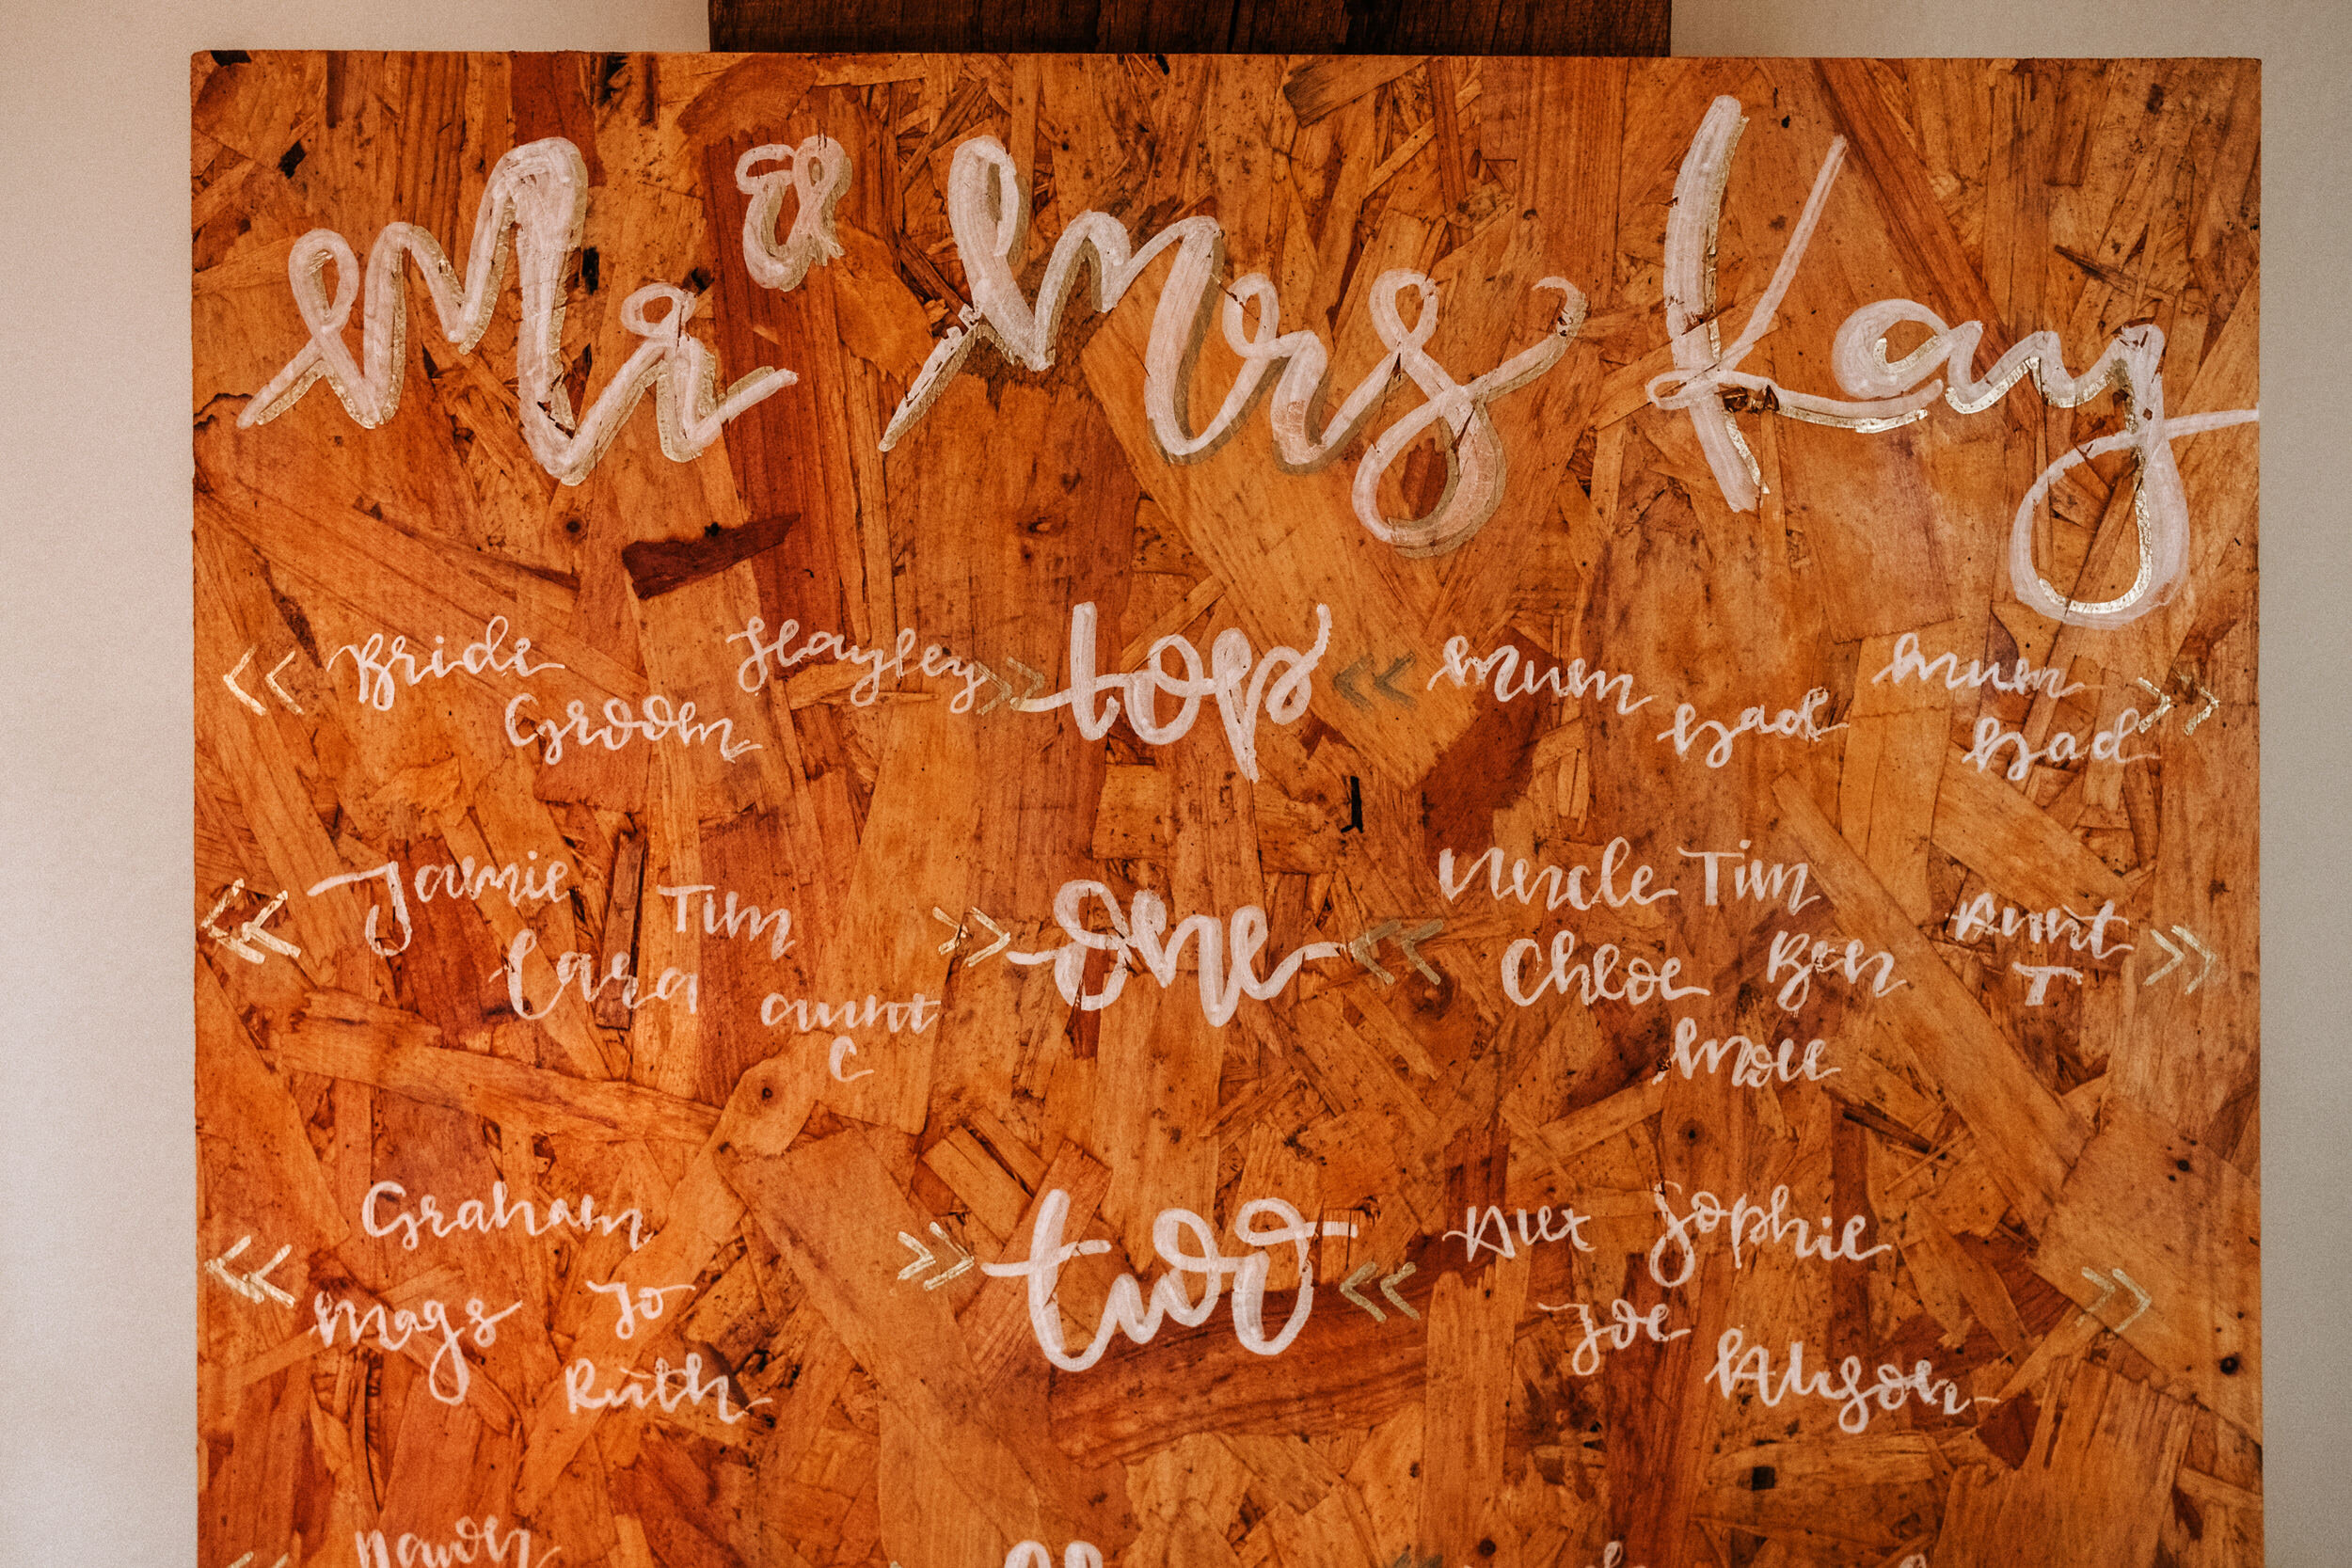 Mr & Mrs Kay
<< Bride Hayley >> top << mum mum >>
Groom Dad Dad
<< Jamie Tim >> one << Uncle Tim Aunt >>
Cara aunt Chloe Ben T
C
Graham Alex Sophie
<< >> two << >>
Mags Jo Joe
Ruth Alyson